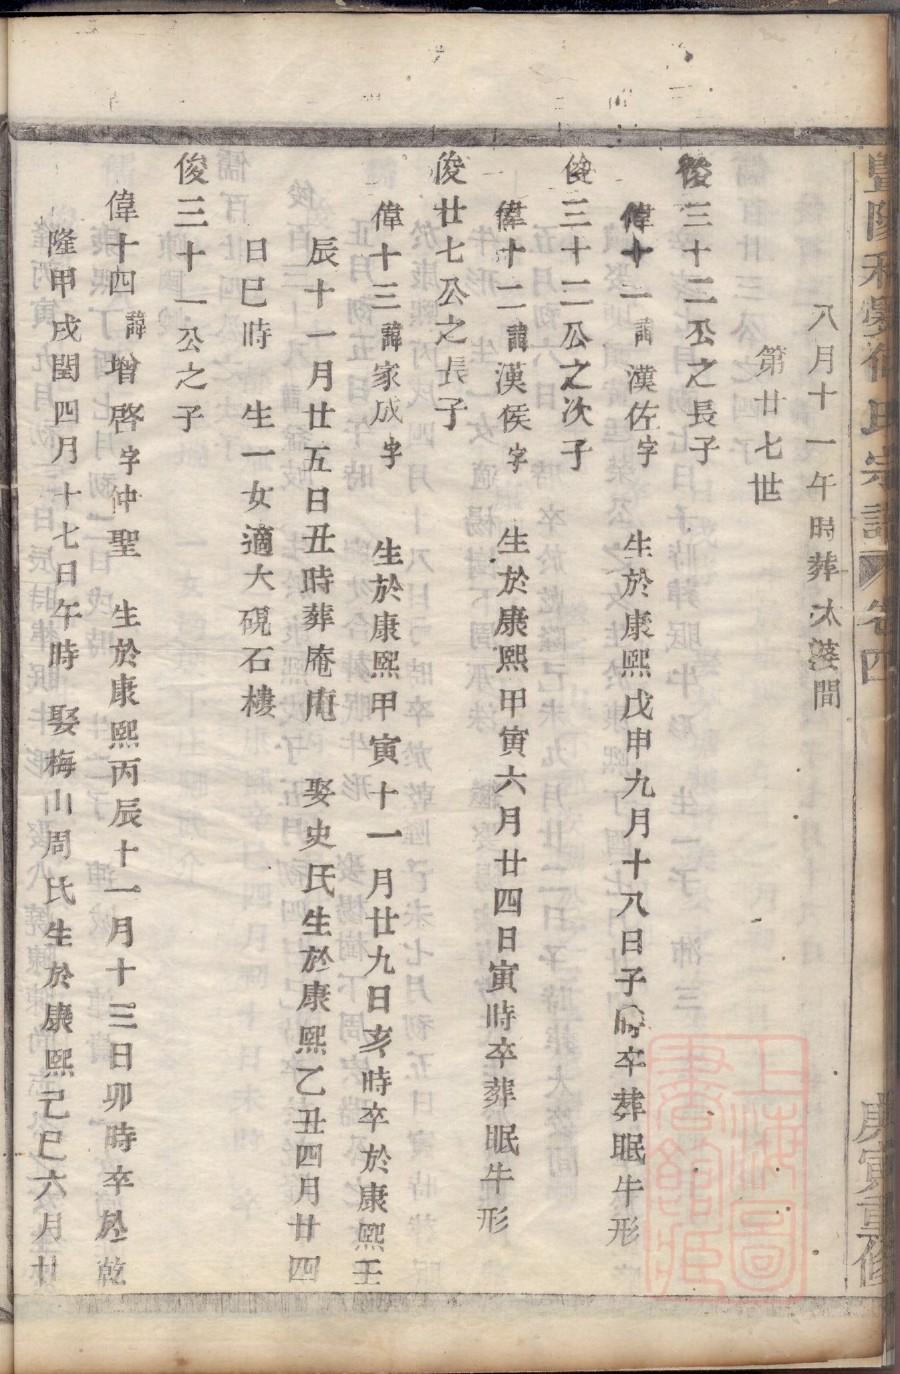 八月十一午時葬汰蔆間
第廿七世
俊三十二公之長子
偉十一諱漢佐字 生於康熙戊申九月十八日子時卒葬眠牛形
俊三十二公之次子
偉十二諱漢侯字 生於康熙甲寅六月廿四日寅時卒葬眠牛形
俊廿七公之長子
偉十三諱家成字 生於康熙甲寅十一月廿九日亥時卒於康熙壬
辰十一月廿五日丑時葬庵庵 娶史氏生於康熙乙丑四月廿四
日巳時 生一女適大硯石樓
俊三十一公之子
偉十四諱增啓字仲聖 生於康熙丙辰十一月十三日卯時卒於乾
隆甲戌閏四月十七日午時 娶梅山周氏生於康熙己巳六月廿
氏宗譜 卷四 庚寅重修
上海圖書館藏